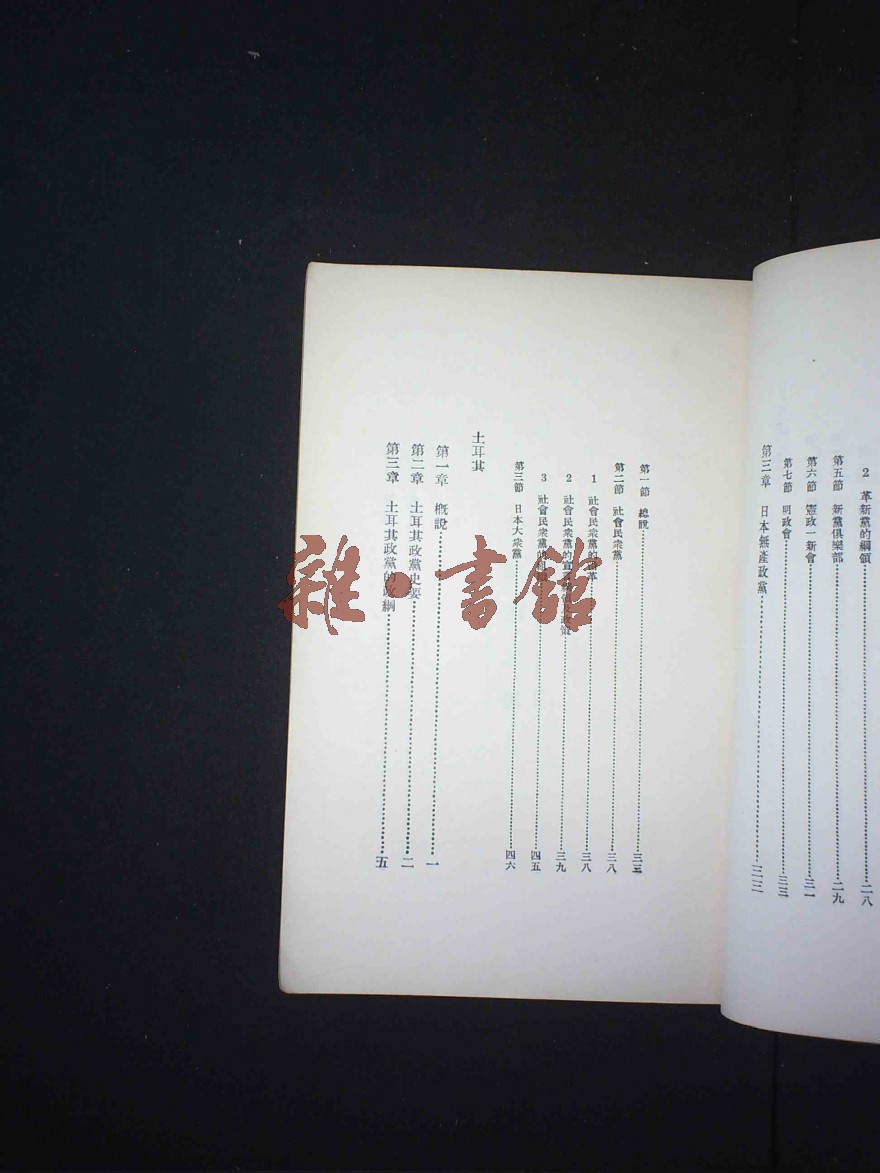 2 革新黨的綱領……二八
第五節 新黨俱樂部……二九
第六節 憲政一新會……三一
第七節 明政會……三三
第三章 日本無產政黨……三三
第一節 總說……三三
第二節 社會民衆黨……三八
1 社會民衆黨的沿革……三八
2 社會民衆黨的宣言綱領及政策……三九
3 社會民衆黨的……四五
第三節 日本大衆黨……四六
土耳其
第一章 概說……一
第二章 土耳其政黨史要……二
第三章 土耳其政黨的政綱……五
雜·書館